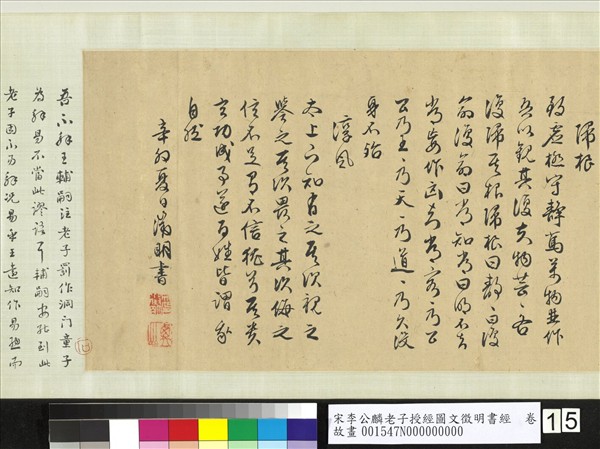 歸根
致虛極守靜篤萬物並作
吾以觀其復夫物芸〻各
復歸其根歸根曰靜〻曰復
命復命曰常知常曰明不知
常妄作凶知常容〻乃公
公乃王〻乃天〻乃道〻乃久沒
身不殆
淳風
太上下知有之其次親之
譽之其次畏之其次侮之
信不足有不信猶兮其貴
言功成事遂百姓皆謂我
自然
辛卯夏日徵明書
吾不解王輔嗣注老子罰作洞門童子
為解易不當此謬語耳輔嗣安到此
老子固不易解況易乎王知作易而
宋李公麟老子授經圖文徵明書經 卷
故畫 001547N000000000
15